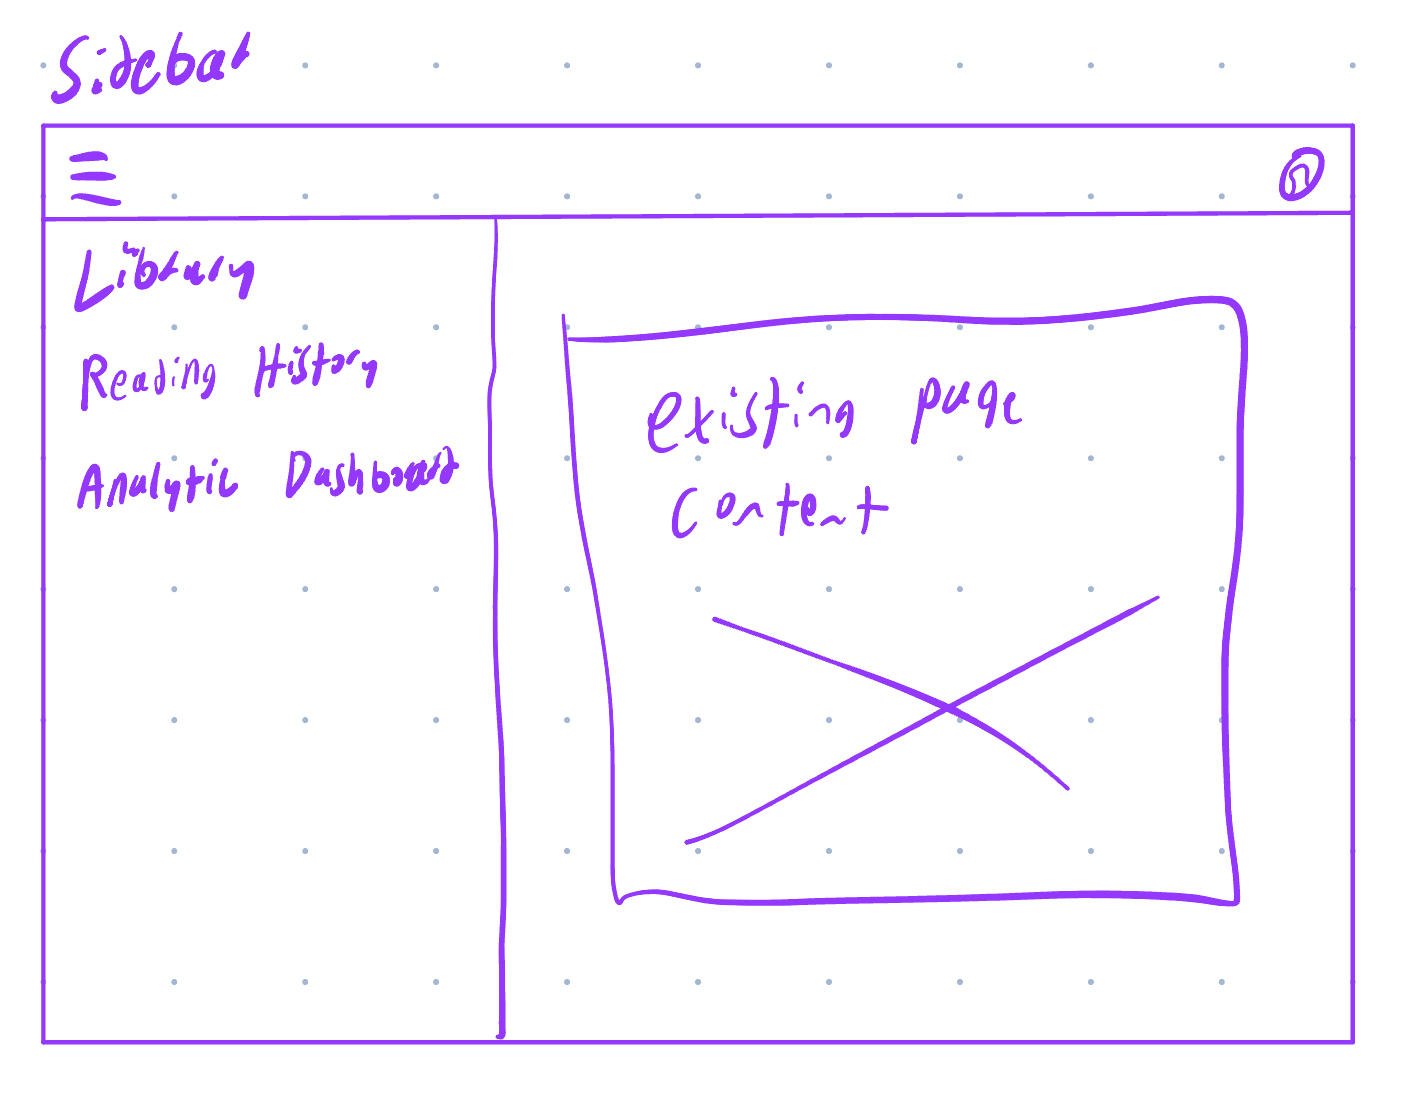 Sidebar
Library
Reading History
Analytic Dashboard
existing page
content